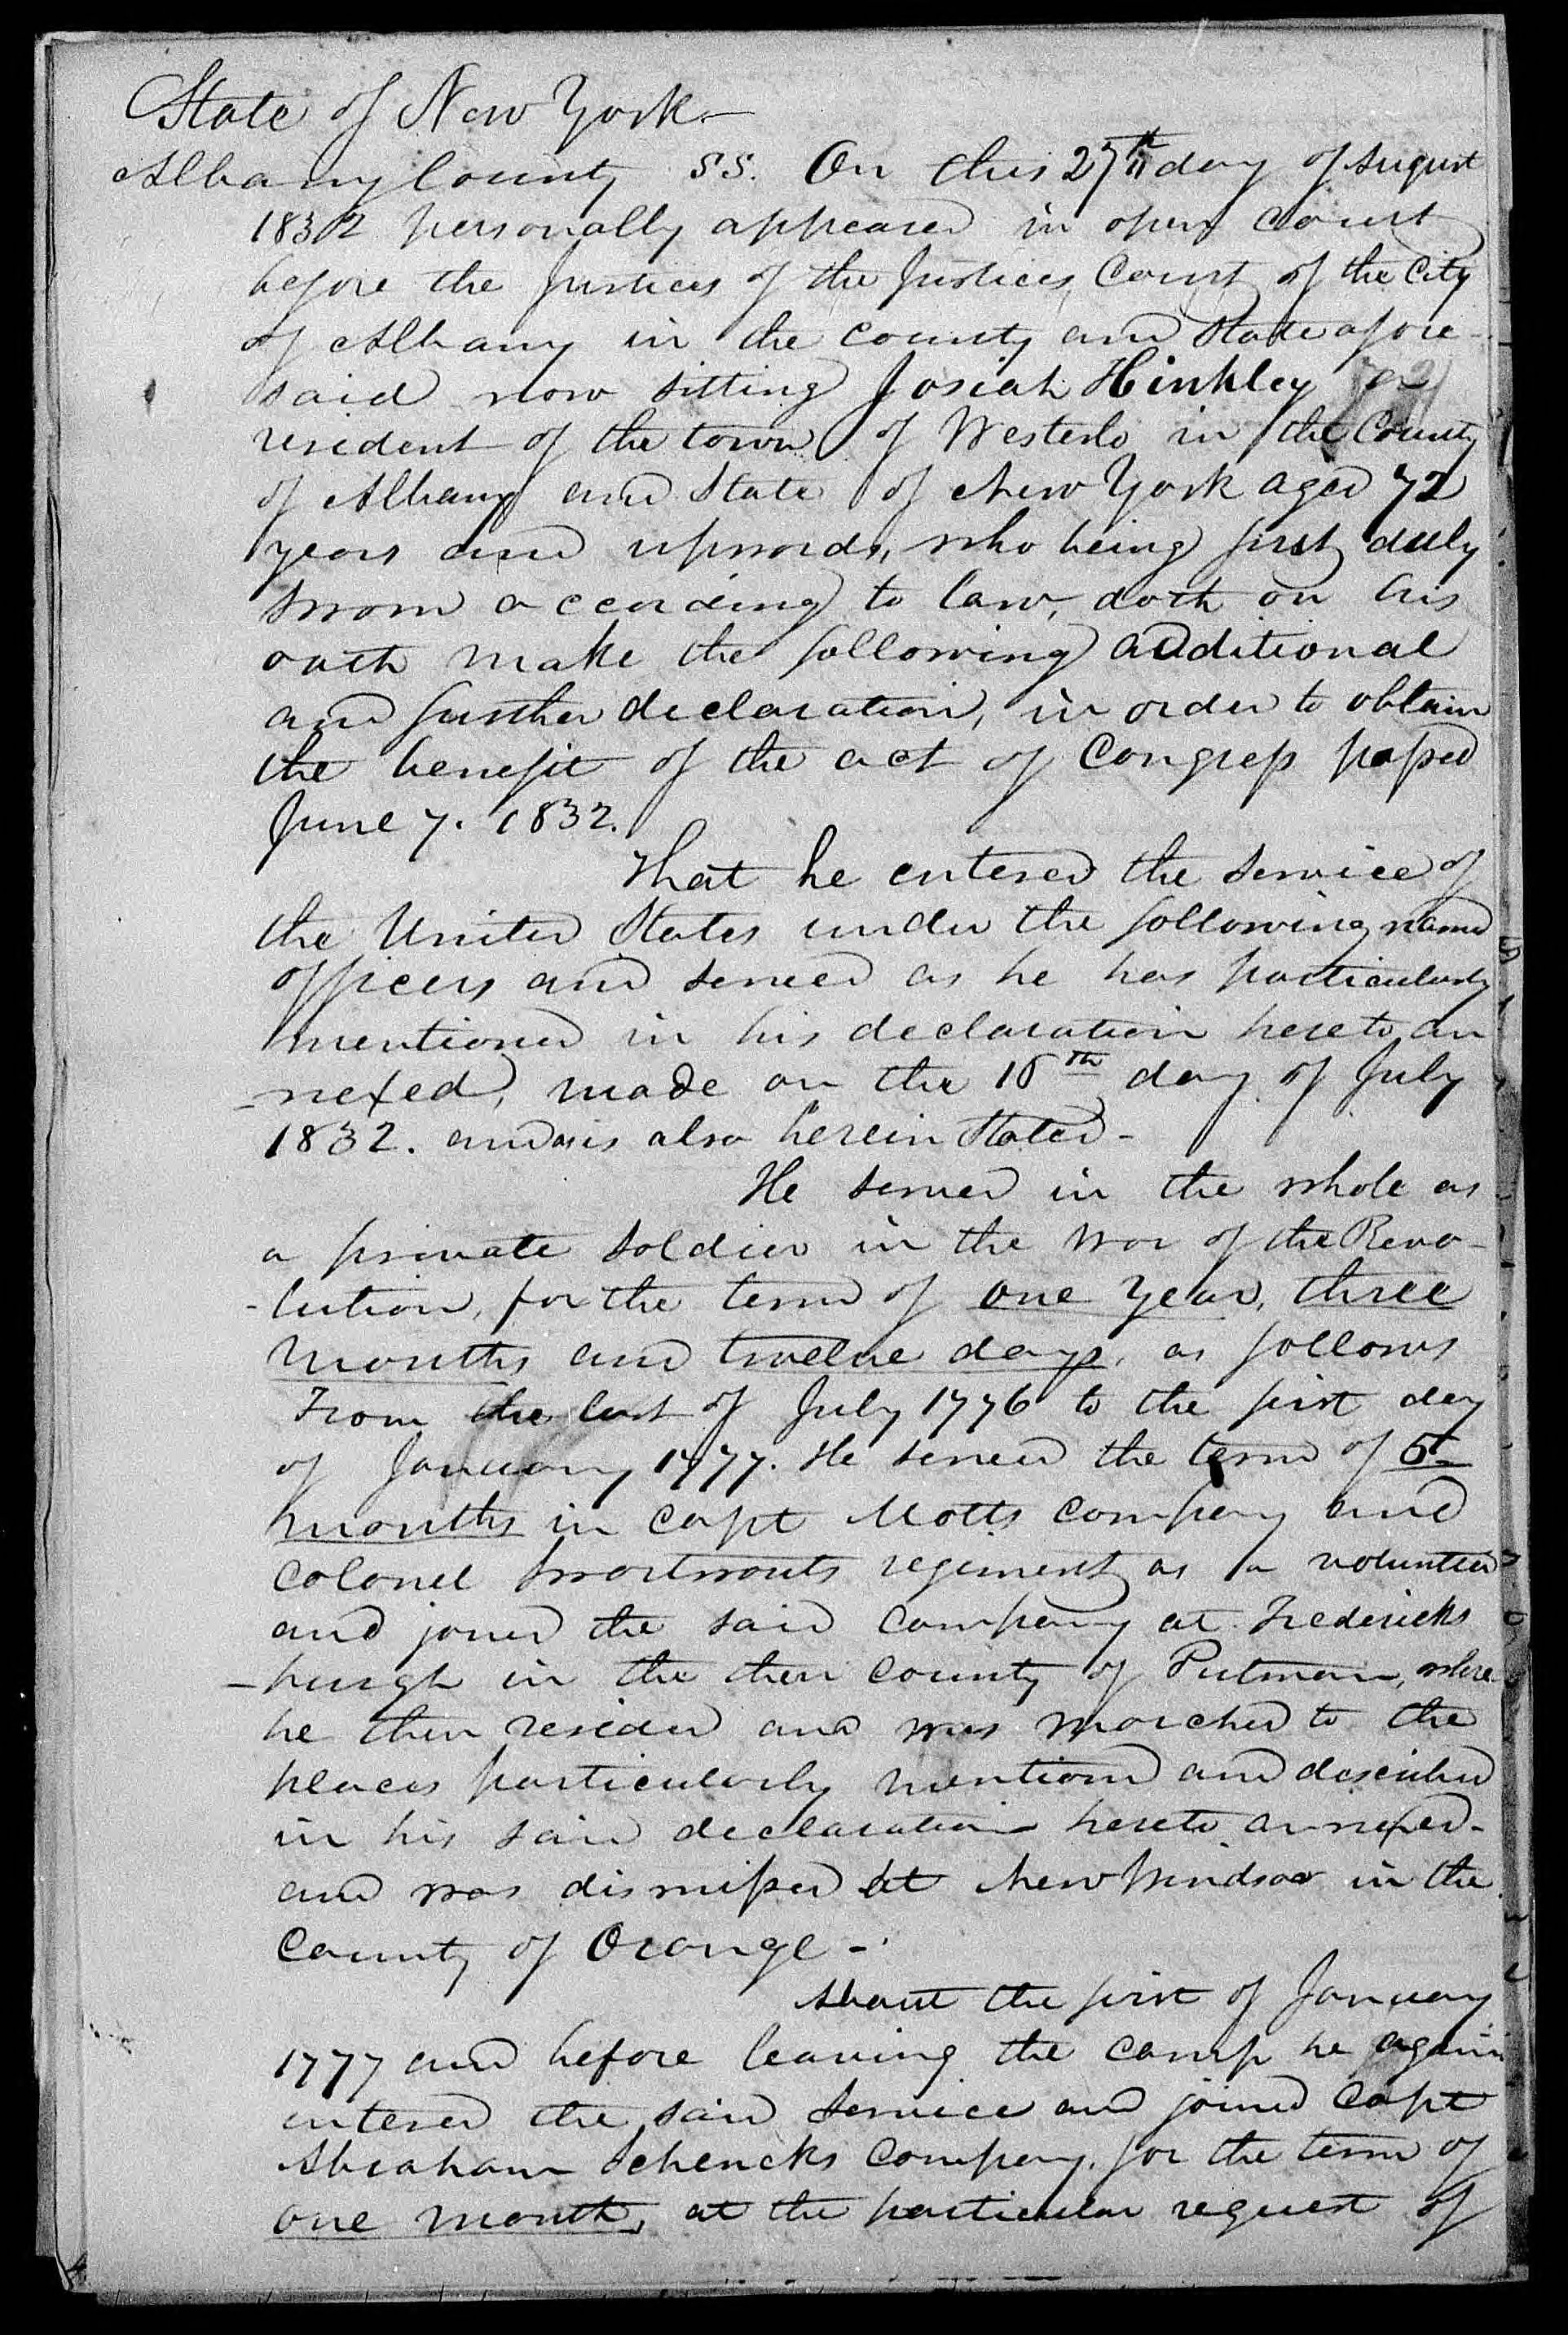 State of New York
Albany County SS. On this 27th day of August
1832 personally appeared in open court
before the Justices of the Justices Court of the City
of Albany in the County and State afore-
said now sitting Josiah Hinkley a
resident of the town of Westerlo in the County
of Albany and State of New York aged 72
years and upwards, who being first duly
sworn according to law, doth on his
oath make the following additional
and further declaration, in order to obtain
the benefit of the act of Congress passed
June 7. 1832.
That he entered the service of
the United States under the following named
officers and served as he has particularly
mentioned in his declaration hereto an
-nexed, made on the 16th day of July
1832. and as is also herein stated -
He served in the whole as
a private soldier in the War of the Revo-
-lution, for the term of one year, three
months and twelve days, as follows
From the last of July 1776 to the first day
of January 1777. He served the term of 5-
months in Capt Motts company and
Colonel Swortwouts regiment as a volunteer
and joined the said company at Fredericks
-burgh in the then County of Putman, where
he then resided and was marched to the
places particularly mentioned and described
in his said declaration hereto annexed-
and was dismissed at New Windsor in the
County of Orange -
About the first of January
1777 and before leaving the camp he again
entered the said service and joined Capt
Abraham Schencks Company, for the term of
one month, at the particular request of